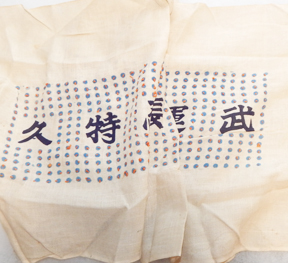 武運長特久